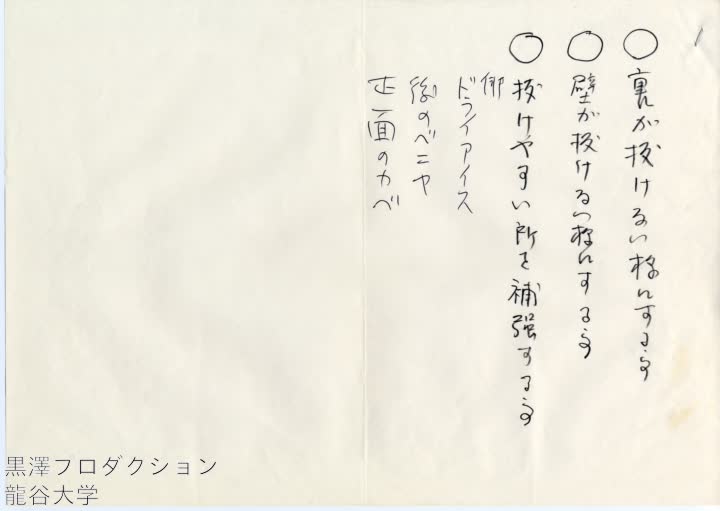 ○裏が抜けない様にする事
○壁が抜けない様にする事
○抜けやすい所を補強する事
ドライアイス
後のベニヤ
正面のカベ
黒澤プロダクション
龍谷大学